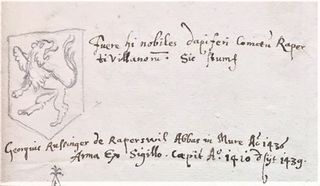 Fuere hi nobiles dapiferi Comitū Raper
tivillanorū. Sic
Georgius Russinger de Raperswil Abbas in Mure Aº 1436
Arma Ex Sigillo. Cœpit Aº. 1410 1439.